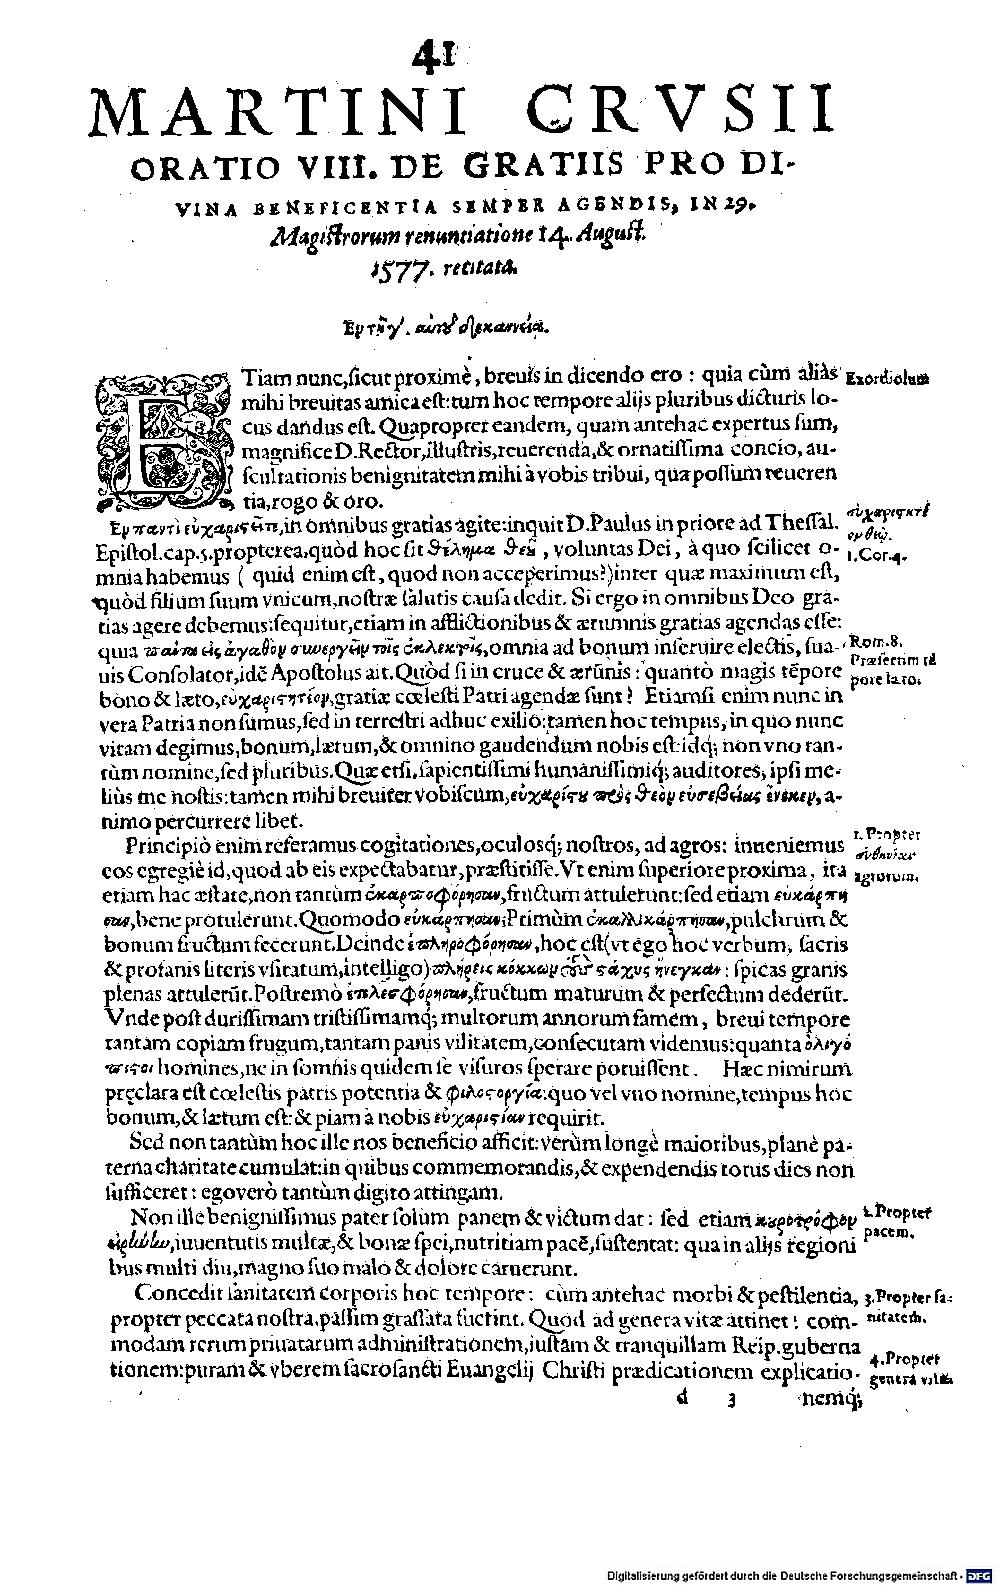 41
MARTINI CRVSII
ORATIO VIII. DE GRATIIS PRO DI-
VINA BENEFICENTIA SEMPER AGENDIS, IN 29.
Magistrorum renuntiatione 14. August.
1577. recitata.
Ἐν τῇ γ'. αὐτοῦ δεκανείᾳ.
ETiam nunc, sicut proximè, breuis in dicendo ero: quia cùm aliàs
Exordiolum
mihi breuitas amica est: tum hoc tempore alijs pluribus dicturis lo-
cus dandus est. Quapropter eandem, quam antehac expertus sum,
magnifice D. Rector, illustris, reuerenda, & ornatissima concio, au-
scultationis benignitatem mihi à vobis tribui, qua possum reueren
tia, rogo & oro.
Ἐν παντὶ εὐχαριστεῖτε, in omnibus gratias agite: inquit D. Paulus in priore ad Thessal.
Epistol. cap. 5. propterea, quòd hoc sit θέλημα θεοῦ, voluntas Dei, à quo scilicet o-
1. Cor. 4.
mnia habemus ( quid enim est, quod non acceperimus?) inter quæ maximum est,
quòd filium suum vnicum, nostræ salutis causa dedit. Si ergo in omnibus Deo gra-
tias agere debemus: sequitur, etiam in afflictionibus & ærumnis gratias agendas esse:
quia πάντα εἰς ἀγαθὸν συνεργεῖν τοῖς ἐκλεκτοῖς, omnia ad bonum inseruire electis, sua-
Rom. 8.
uis Consolator, idē Apostolus ait. Quòd si in cruce & ærūnis: quantò magis tēpore
Præsertim tē
bono & læto, εὐχαριστητέον, gratiæ cœlesti Patri agendæ sunt? Etiamsi enim nunc in
pore læto.
vera Patria non sumus, sed in terrestri adhuc exilio: tamen hoc tempus, in quo nunc
vitam degimus, bonum, lætum, & omnino gaudendum nobis est: idq; non vno tan-
tùm nomine, sed pluribus. Quæ etsi, sapientissimi humanissimiq; auditores, ipsi me-
liùs me nostis: tamen mihi breuiter vobiscum, εὐχαρίστου πρὸς θεὸν εὐσεβείας ἕνεκεν, a-
nimo percurrere libet.
Principiò enim referamus cogitationes, oculosq; nostros, ad agros: inueniemus
1. Propter
eos egregiè id, quod ab eis expectabatur, præstitisse. Vt enim superiore proxima, ita
εὐθηνίαν
agrorum.
etiam hac æstate, non tantùm ἐκαρποφόρησαν, fructum attulerunt: sed etiam εὐκάρπη
σαν, bene protulerunt. Quomodo εὐκάρπησαν; Primùm ἐκαλλικάρπησαν, pulchrum &
bonum fructum fecerunt. Deinde ἐπληροφόρησαν, hoc est (vt ego hoc verbum, sacris
& profanis literis vsitatum, intelligo) πλήρεις κόκκων τοὺς στάχυς ἤνεγκαν: spicas granis
plenas attulerūt. Postremò ἐτελεσφόρησαν, fructum maturum & perfectum dederūt.
Vnde post durissimam tristissimamq; multorum annorum famem, breui tempore
tantam copiam frugum, tantam panis vilitatem, consecutam videmus: quanta ὀλιγό
πιστοι homines, ne in somnis quidem se visuros sperare potuissent. Hæc nimirum
pręclara est cœlestis patris potentia & φιλοστοργία: quo vel vno nomine, tempus hoc
bonum, & lætum est: & piam à nobis εὐχαριστίαν requirit.
Sed non tantùm hoc ille nos beneficio afficit: verùm longè maioribus, planè pa-
terna charitate cumulat: in quibus commemorandis, & expendendis totus dies non
sufficeret: ego verò tantùm digito attingam.
Non ille benignissimus pater solum panem & victum dat: sed etiam κουροτρόφον
2. Propter
pacem.
εἰρήνην, iuuentutis multæ, & bonæ spei, nutritiam pacē, sustentat: qua in alijs regioni
bus multi diu, magno suo malo & dolore caruerunt.
Concedit sanitatem corporis hoc tempore: cùm antehac morbi & pestilentia,
3. Propter sa-
nitatem.
propter peccata nostra, passim grassata fuerint. Quod ad genera vitæ attinet: com-
modam rerum priuatarum administrationem, iustam & tranquillam Reip. guberna
4. Propter
tionem: puram & vberem sacrosancti Euangelij Christi prædicationem explicatio-
genera vitæ.
d 3 nemq;
Digitalisierung gefördert durch die Deutsche Forschungsgemeinschaft - DFG